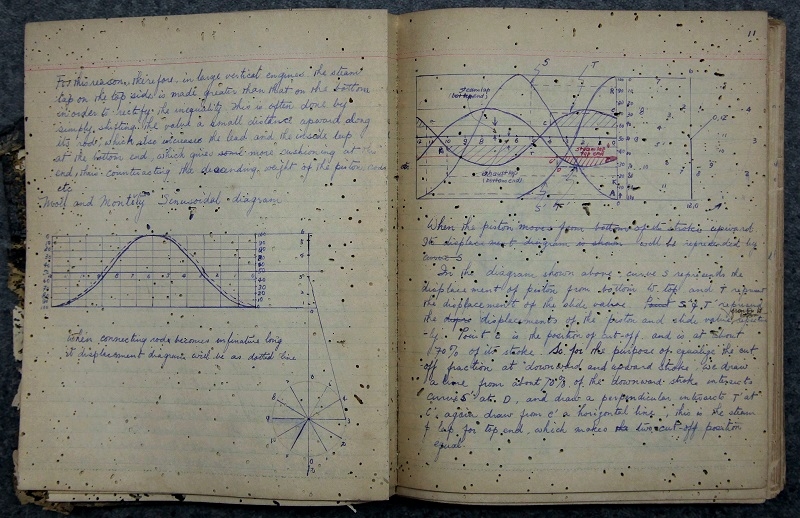 For this reason, therefore, in large vertical engines, the steam
lap on the top side is made greater than that on the bottom
in order to rectify the inequality. This is often done by
simply shifting the valve a small distance upward along
its rod, which also increases the lead and the inside lap
at the bottom end, which gives some more cushioning at the
end, thus counteracting the descending weight of the piston rods
etc.
and Sinusoidal diagram
When connecting rods becomes infinative long
it displacement diagram will be as dotted line
11
S T
Steam lap
(bottom end)
steam lap
top end
exhaust lap
(bottom end)
S' T'
When the piston moves from bottom of its stroke upward
Its displacement diagram is shown will be represented by
curve S
In the diagram shown above, curve S represents the
displacement of piston from bottom to top and T represent
the displacement of the slide valve. S' & T' represent
the displacements of the piston and slide valve
-ly. Point C is the position of cut-off and is at about
70% of its stroke. So for the purpose of equalize the cut
off fraction at downward and upward stroke, we draw
a line from about 70% of the downward stroke intersects
curve S' at D, and draw a perpendicular intersects T' at
C', again draw from C' a horizontal line, this is the steam
lap for top end, which makes the two cut-off position
equal.